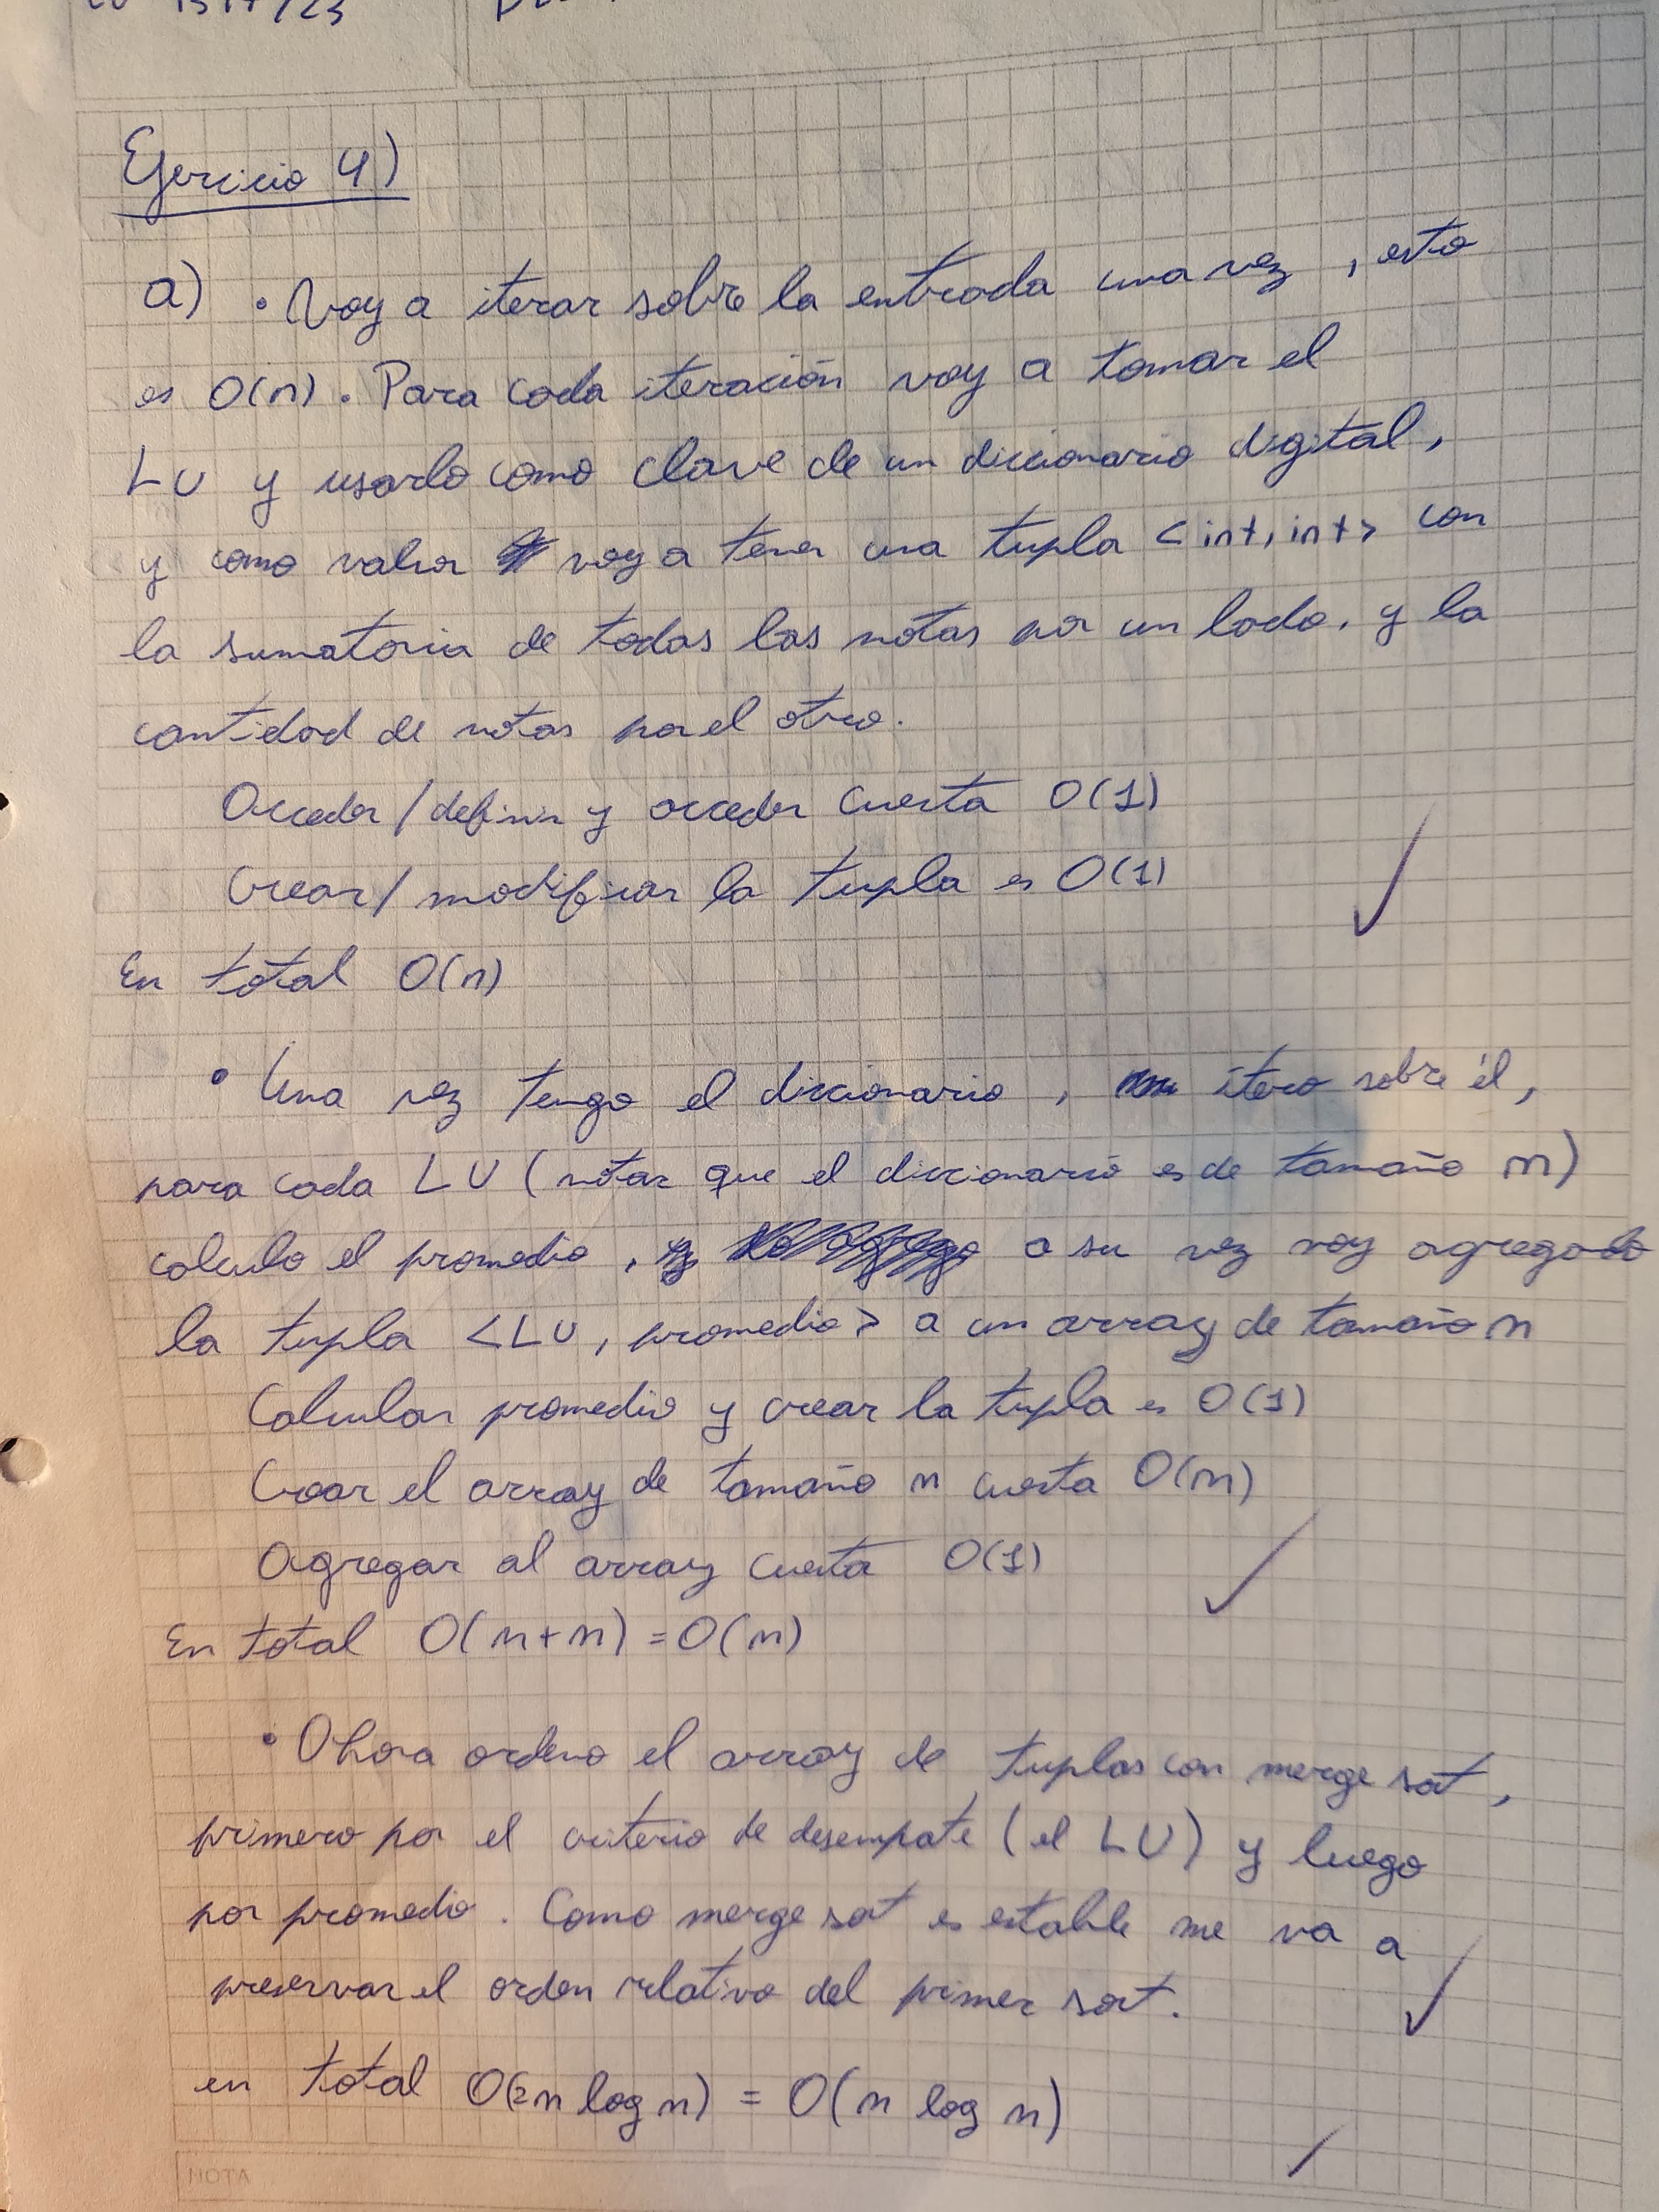 Ejercicio 4)
a) • Voy a iterar sobre la entrada una vez, esto
es O(n). Para cada iteración voy a tomar el
LU y usarlo como clave de un diccionario digital,
y como valor voy a tener una tupla <int, int> con
la sumatoria de todas las notas por un lado, y la
cantidad de notas por el otro.
Acceder / definir y acceder cuesta O(1)
Crear / modificar la tupla es O(1)
En total O(n)
• Una vez tengo el diccionario, itero sobre él,
para cada LU (notar que el diccionario es de tamaño n)
calculo el promedio, a su vez voy agregado
la tupla <LU, promedio> a un array de tamaño n
Calcular promedio y crear la tupla es O(1)
Crear el array de tamaño n cuesta O(n)
Agregar al array cuesta O(1)
En total O(n+n) = O(n)
• Ahora ordeno el array de tuplas con merge sort,
primero por el criterio de desempate (el LU) y luego
por promedio. Como merge sort es estable me va a
preservar el orden relativo del primer sort.
en total O(2n log n) = O(n log n)
NOTA